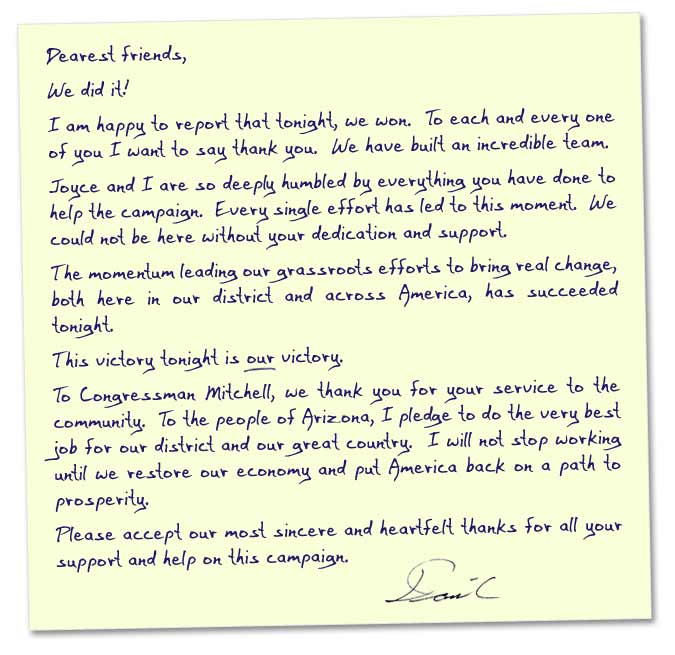 Dearest friends,
We did it!
I am happy to report that tonight, we won. To each and every one
of you I want to say thank you. We have built an incredible team.
Joyce and I are so deeply humbled by everything you have done to
help the campaign. Every single effort has led to this moment. We
could not be here without your dedication and support.
The momentum leading our grassroots efforts to bring real change,
both here in our district and across America, has succeeded
tonight.
This victory tonight is our victory.
To Congressman Mitchell, we thank you for your service to the
community. To the people of Arizona, I pledge to do the very best
job for our district and our great country. I will not stop working
until we restore our economy and put America back on a path to
prosperity.
Please accept our most sincere and heartfelt thanks for all your
support and help on this campaign.